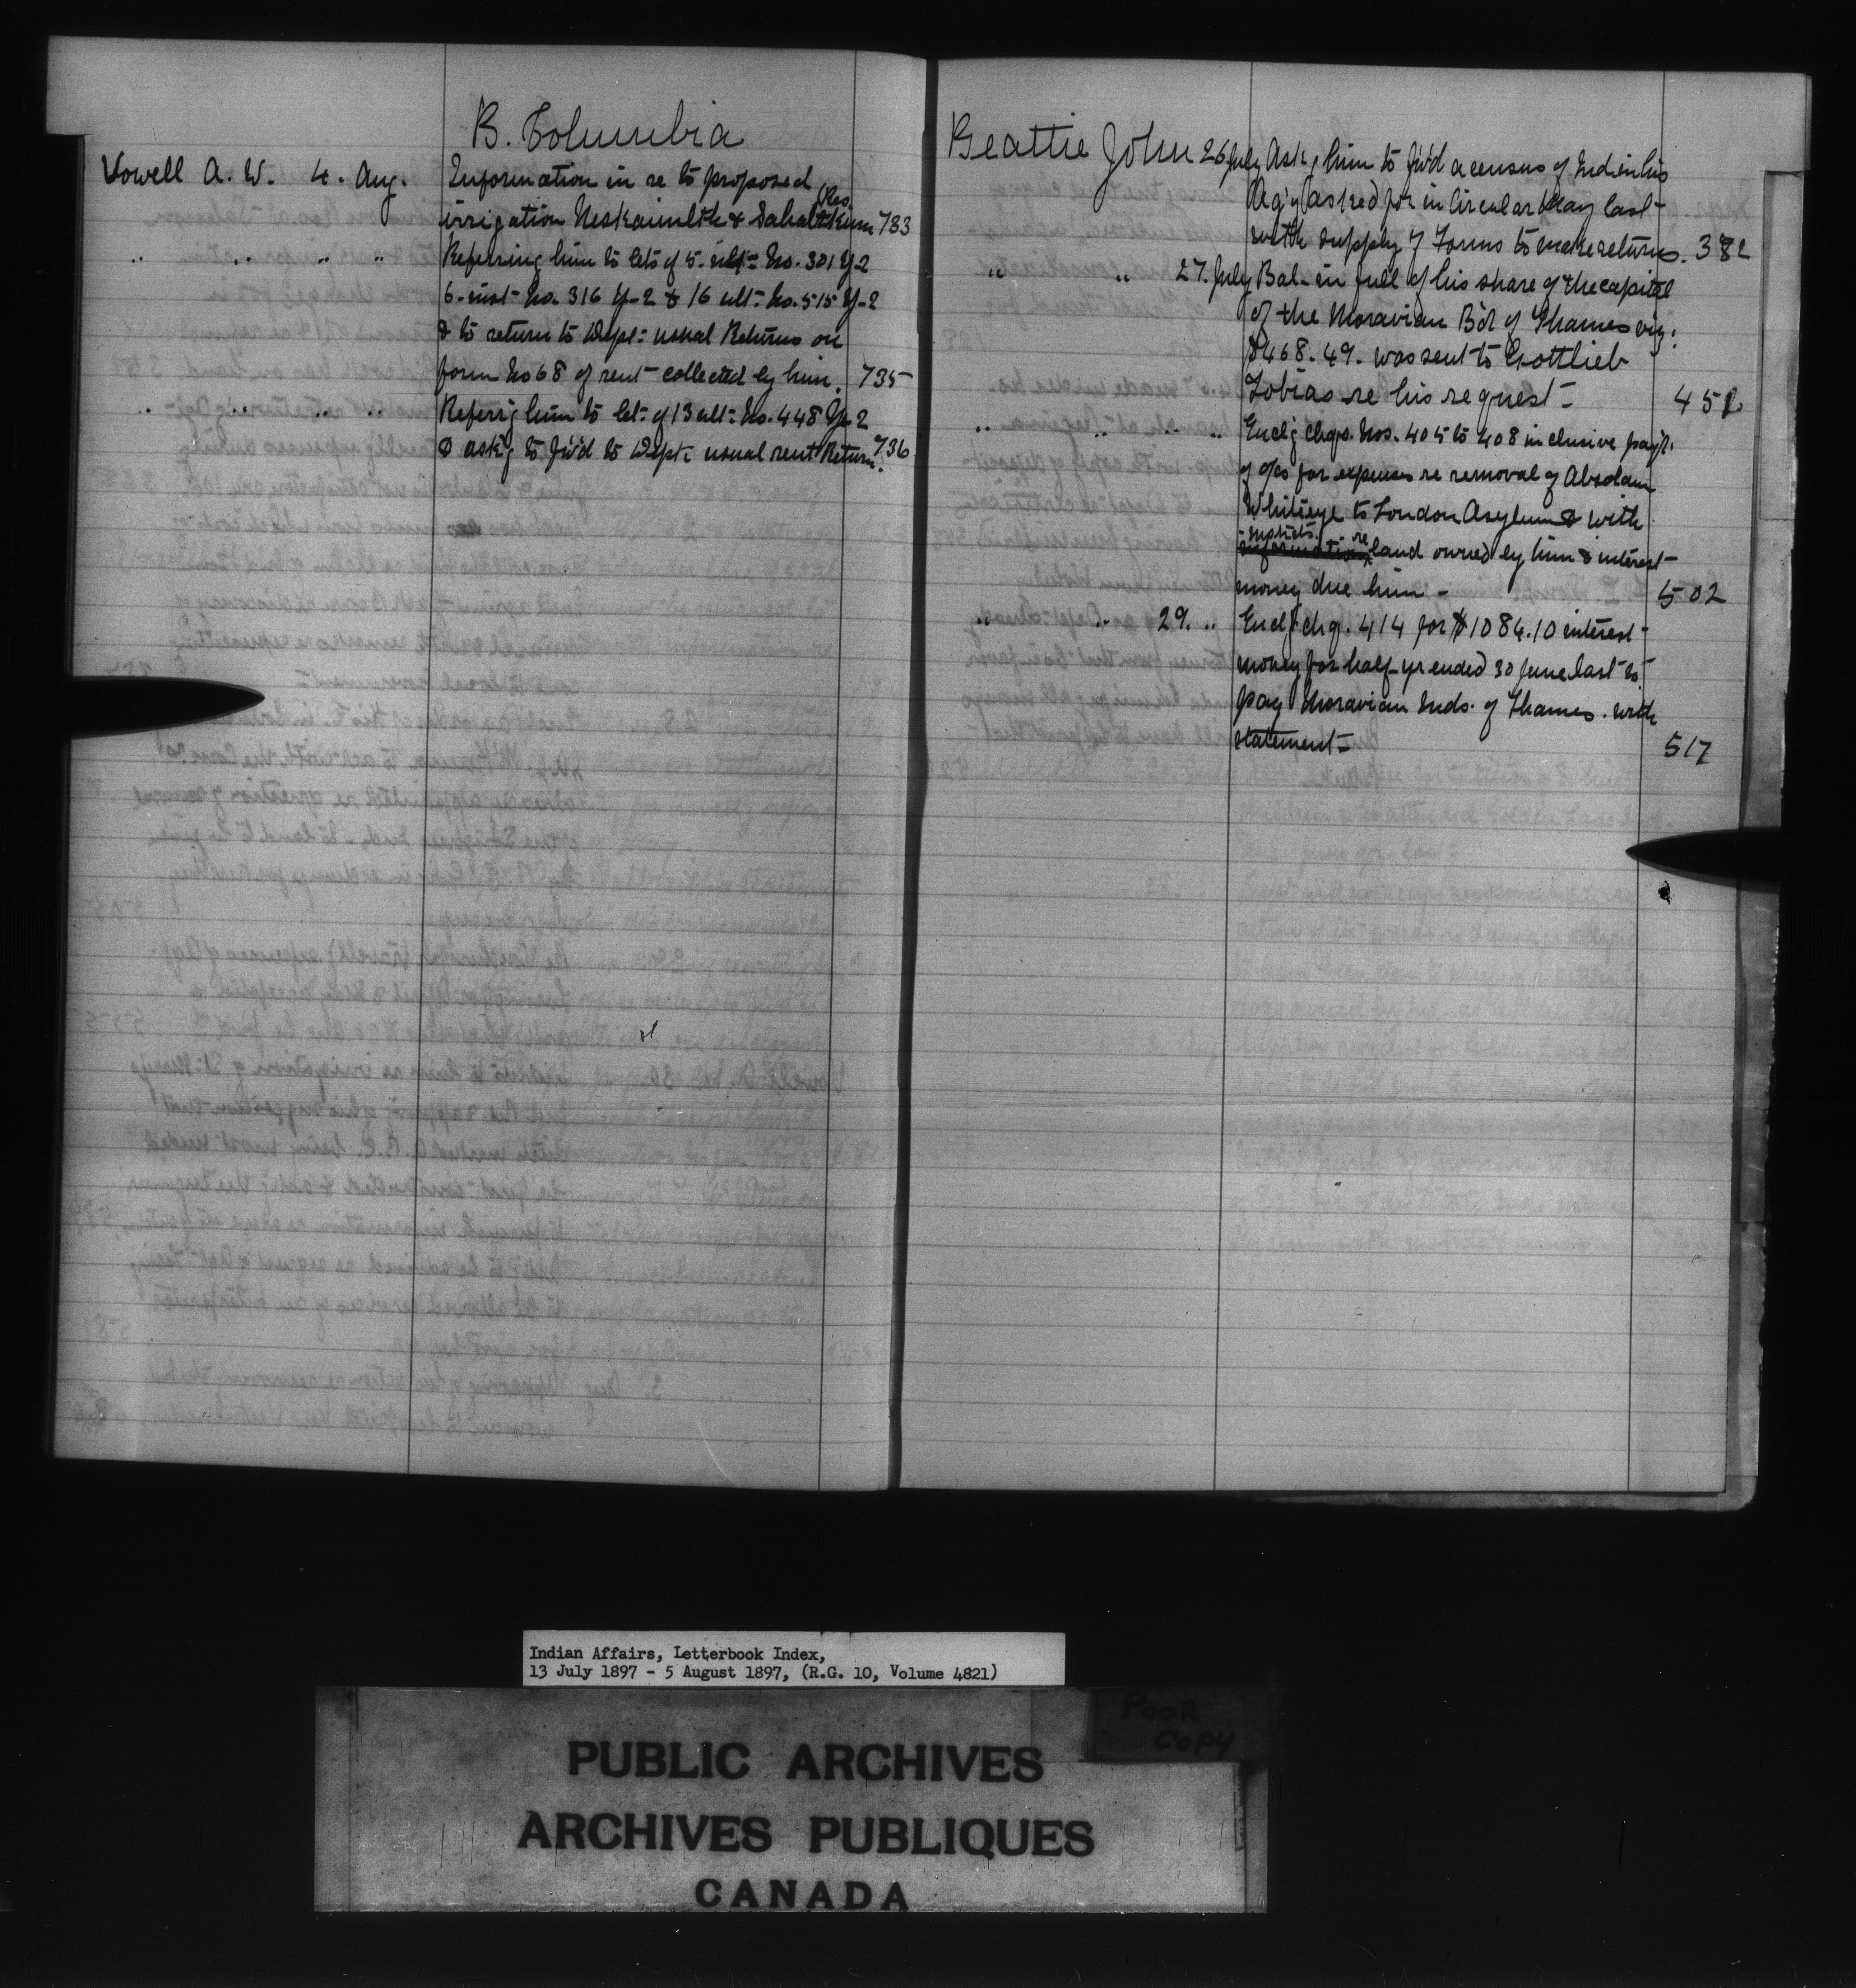 B. Columbia
Vowell A. W. 4. Aug. Information in re to proposed
irrigation Neskainlth & Sahaltkum Res. 733
.. .. .. .. Refering him to lets of 5. ult= No. 301 Y-2
6-inst- No. 316 Y-2 & 16 ult= No. 515 Y-2
& to return to Dept= usual Returns on
form No 68 of rent collected by him. 735
.. .. .. .. Referrg him to let= of 13 ult= No. 448 Y-2
& askg to fw'd to Dept= usual rent Return. 736
Beattie John 26 July Askg him to fw'd a census of Ind in his
Ag'y (asked for in Circular May last-
with supply of Forms to make returns. 382
.. .. 27. July Bal- in full of his share of the capital
of the Moravian B'd of Thames viz:
$468.49. was sent to Gottlieb
Tobias re his request- 451
.. .. .. .. Enclg chqs. Nos. 405 to 408 inclusive pay't.
of a/cs for expenses re removal of Absolam
Whiteeye to London Asylum & with
instrcts. re land owned by him & interest-
money due him- 502
.. .. 29. .. Enclg chq. 414 for $1084.10 interest-
money for half-yr ended 30 June last to
pay Moravian Inds. of Thames. with
statement- 517
Indian Affairs, Letterbook Index,
13 July 1897 - 5 August 1897, (R.G. 10, Volume 4821)
POOR
COPY
PUBLIC ARCHIVES
ARCHIVES PUBLIQUES
CANADA